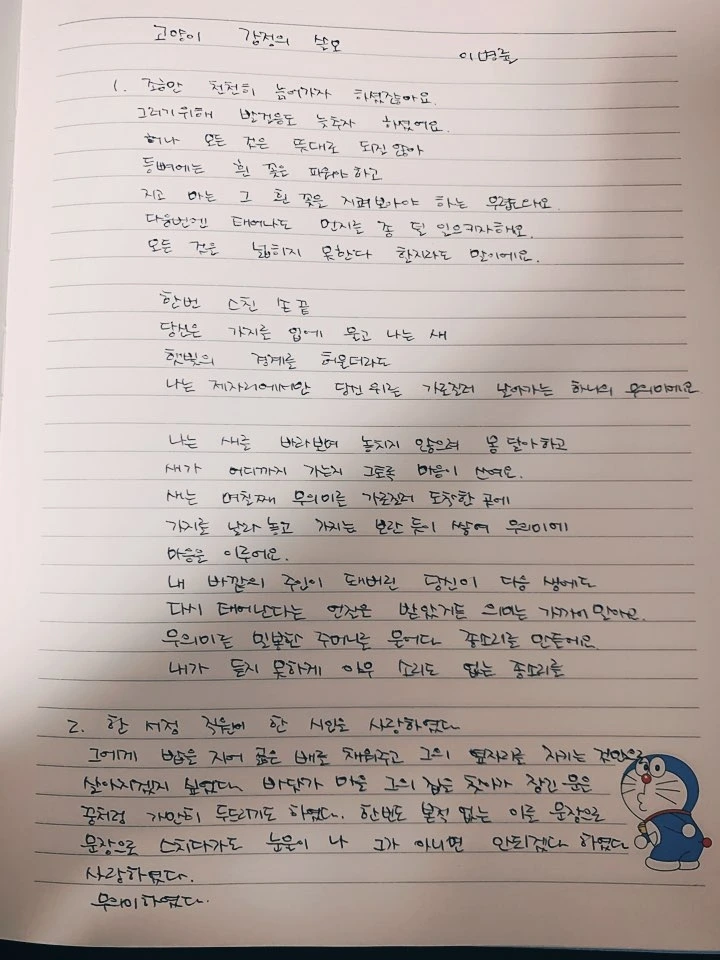 고양이 감정의 쓸모
이병률
1. 조금만 천천히 늙어가자 하셨잖아요.
그러기 위해 발걸음도 늦추자 하셨어요.
허나 모든 것은 뜻대로 되질 않아
등뼈에는 흰 꽃을 피워야 하고
지고 마는 그 흰 꽃을 지켜보아야 하는 무렵도 와요.
다음번엔 태어나도 먼지를 좀 덜 일으키자 해요.
모든 것은 넓히지 못한다 한지라도 말이에요.
한번 스친 손끝
당신은 가지를 입에 물고 나는 새
햇빛의 경계를 허문더라도
나는 제자리에서만 당신 위를 가로질러 날아가는 하나의 무의미예요
나는 새를 바라보며 놓치지 않으려 몸 달아하고
새가 어디까지 가는지 그토록 마음이 쓰여요.
새는 며칠째 무의미를 가로질러 도착한 곳에
가지를 날라 놓고 가지는 보란 듯이 쌓여 무의미에
마음을 이루어요.
내 바깥의 주인이 돼버린 당신이 다음 생에도
다시 태어난다는 언질을 받았거든 의미는 가까이 말아요.
무의미를 밀봉한 주머니를 물어다 종소리를 만들어요
내가 듣지 못하게 아무 소리도 없는 종소리를
2. 한 서점 직원이 한 시인을 사랑하였다
그에게 밥을 지어 곯은 배를 채워주고 그의 옆자리를 지키는 것만으로
살아지겠지 싶었다. 바닷가 마을 그의 집을 찾아가 잠긴 문을
꿈처럼 가만히 두드리기도 하였다. 한번도 본적 없는 이를 문장으로
문장으로 스치다가도 눈물이 나 그가 아니면 안되겠다 하였다
사랑하였다.
무의미하였다.